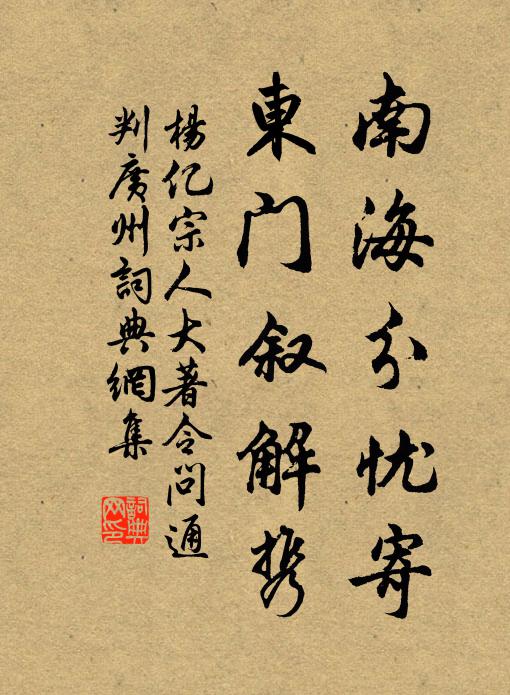 南海分忧寄
東门叙解携
楊亿宗人大著令问通
判廣州詞典網集
詞典网印